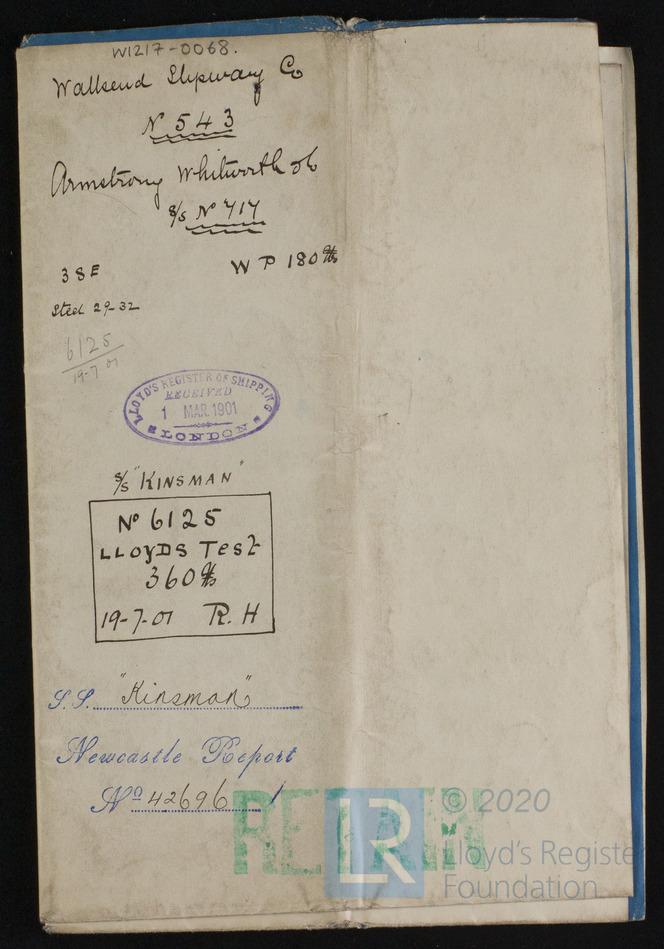 W1217-0068.
Wallsend Slipway Co
No 543
Armstrong Whitworth & Co
S/S No 717
38E
W P 180 lbs
Steel 29-32
6125
19-7-01
LLOYD'S REGISTER OF SHIPPING
RECEIVED
1 MAR.1901
LONDON
S/S "KINSMAN"
No 6125
LLOYDS Test
360 lbs
19-7-01 R.H
S.S. "Kinsman"
Newcastle Report
No 42696
RETAIN
LR
© 2020
Lloyd's Register
Foundation